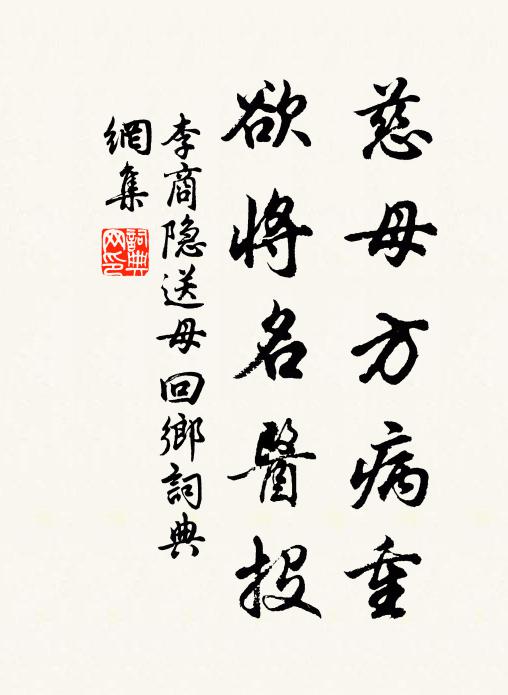 慈母方病重
欲將名醫投
李商隐送母回鄉詞典
網集
詞典
网印